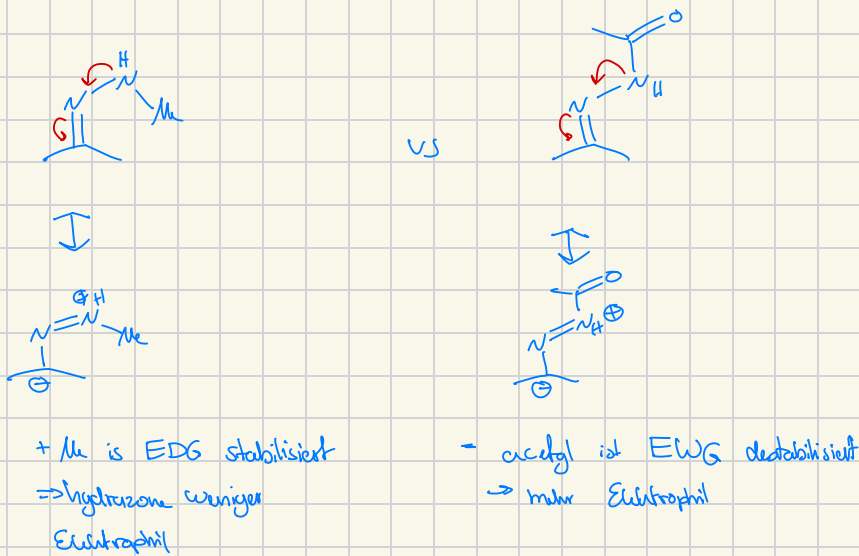 H
N
N
Me
O
N
H
N
vs
⊕ H
N
N
Me
⊖
O
N
H
⊕
N
⊖
+ Me is EDG stabilisiert
⇒ hydrazone weniger
Elektrophil
- acetyl ist EWG destabilisiert
→ mehr Elektrophil